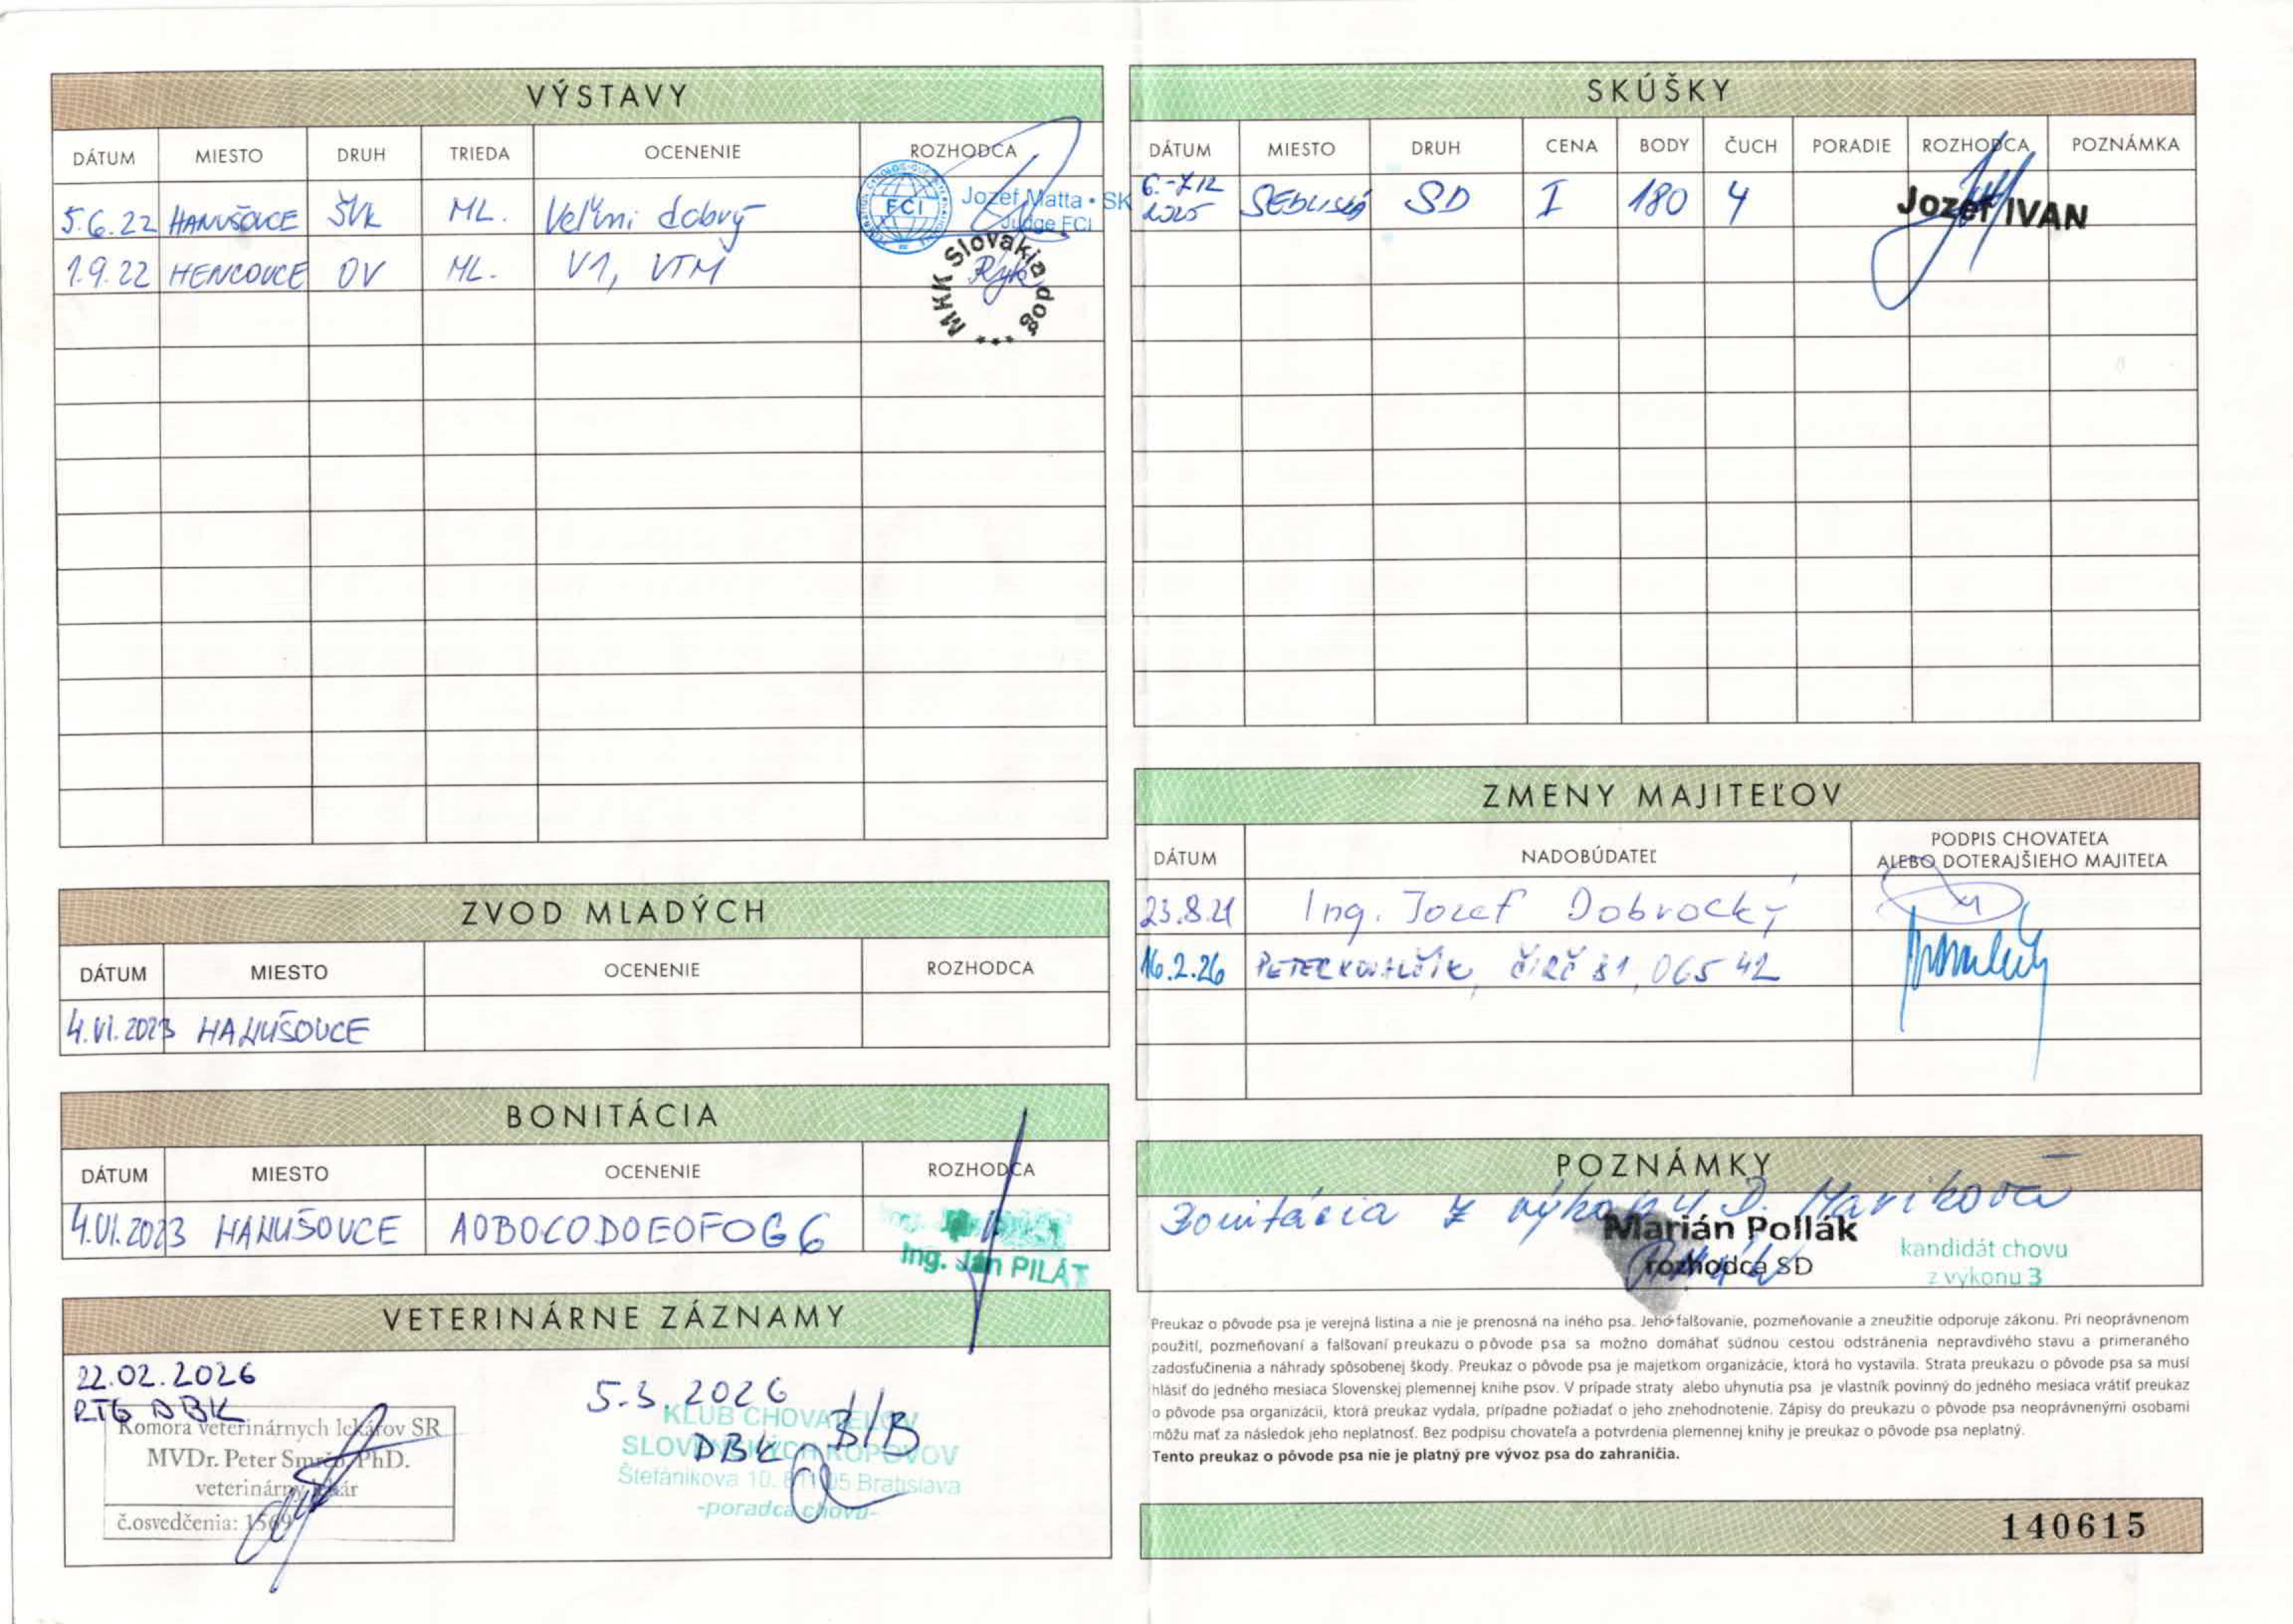 VÝSTAVY
DÁTUM MIESTO DRUH TRIEDA OCENENIE ROZHODCA
5.6.22 HANUŠOVCE ŠVK ML. Veľmi dobrý
FCI
Jozef Matta • SK
Judge FCI
1.9.22 HENCOVCE OV ML. V1, VTM
MKK Slovakia dog
ZVOD MLADÝCH
DÁTUM MIESTO OCENENIE ROZHODCA
4.VI.2023 HANUŠOVCE
BONITÁCIA
DÁTUM MIESTO OCENENIE ROZHODCA
4.VI.2023 HANUŠOVCE A0B0C0D0E0F0G6
Ing. Ján PILÁT
VETERINÁRNE ZÁZNAMY
22.02.2026
RTG DBK
Komora veterinárnych lekárov SR
MVDr. Peter PhD.
veterinárny lekár
č.osvedčenia: 1569
5.3.2026
KLUB CHOVATEĽOV
SLOVENSKÝCH KOPOVOV
DBK - B/B
Štefánikova 10. 811 05 Bratislava
-poradca chovu-
SKÚŠKY
DÁTUM MIESTO DRUH CENA BODY ČUCH PORADIE ROZHODCA POZNÁMKA
6.-7.12 2025 SD I 180 4
Jozef IVAN
ZMENY MAJITEĽOV
DÁTUM NADOBÚDATEĽ PODPIS CHOVATEĽA
ALEBO DOTERAJŠIEHO MAJITEĽA
23.8.21 Ing. Jozef Dobrocký
16.2.26 PETER KOVALČÍK, ČIRČ 81, 065 42
POZNÁMKY
Bonitácia z výkonu D. Mariková
Marián Pollák
rozhodca SD
kandidát chovu
z vykonu 3
Preukaz o pôvode psa je verejná listina a nie je prenosná na iného psa. Jeho falšovanie, pozmeňovanie a zneužitie odporuje zákonu. Pri neoprávnenom
použití, pozmeňovaní a falšovaní preukazu o pôvode psa sa možno domáhať súdnou cestou odstránenia nepravdivého stavu a primeraného
zadosťučinenia a náhrady spôsobenej škody. Preukaz o pôvode psa je majetkom organizácie, ktorá ho vystavila. Strata preukazu o pôvode psa sa musí
hlásiť do jedného mesiaca Slovenskej plemennej knihe psov. V prípade straty alebo uhynutia psa je vlastník povinný do jedného mesiaca vrátiť preukaz
o pôvode psa organizácii, ktorá preukaz vydala, prípadne požiadať o jeho znehodnotenie. Zápisy do preukazu o pôvode psa neoprávnenými osobami
môžu mať za následok jeho neplatnosť. Bez podpisu chovateľa a potvrdenia plemennej knihy je preukaz o pôvode psa neplatný.
Tento preukaz o pôvode psa nie je platný pre vývoz psa do zahraničia.
140615